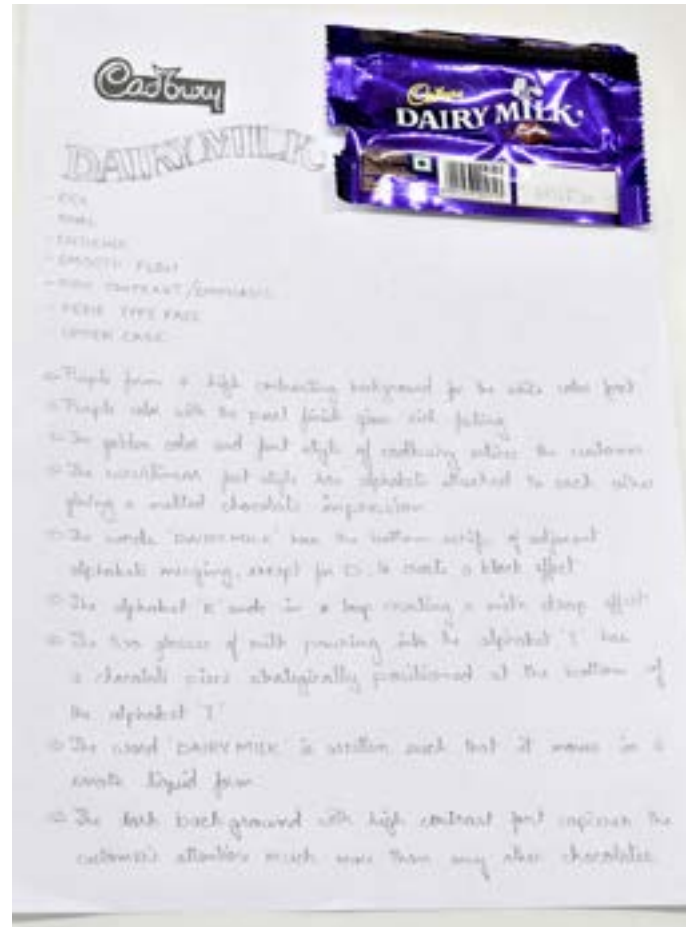 Cadbury
DAIRY MILK
Cadbury
DAIRY MILK
- RICH
- SMOOTH FLOW
- HIGH CONTRAST/EMPHASIS
- SERIF TYPE FACE
- UPPER CASE
Purple form a high contrasting background for the white color font
Purple color with the pearl finish gives rich feeling
The golden color and font style of cadbury entices the customer
The curvilinear font style has alphabets attached to each other
giving a melted chocolate impression
The words 'DAIRY MILK' has the bottom serifs of adjacent
alphabets merging, except for D, to create a block effect
The alphabet 'K' ends in a loop creating a milk drop effect
The two glasses of milk pouring into the alphabet 'I' has
a chocolate piece strategically positioned at the bottom of
the alphabet 'I'
The word 'DAIRY MILK' is written such that it moves in a
liquid form
The dark background with high contrast font captures the
customers attention much more than any other chocolates